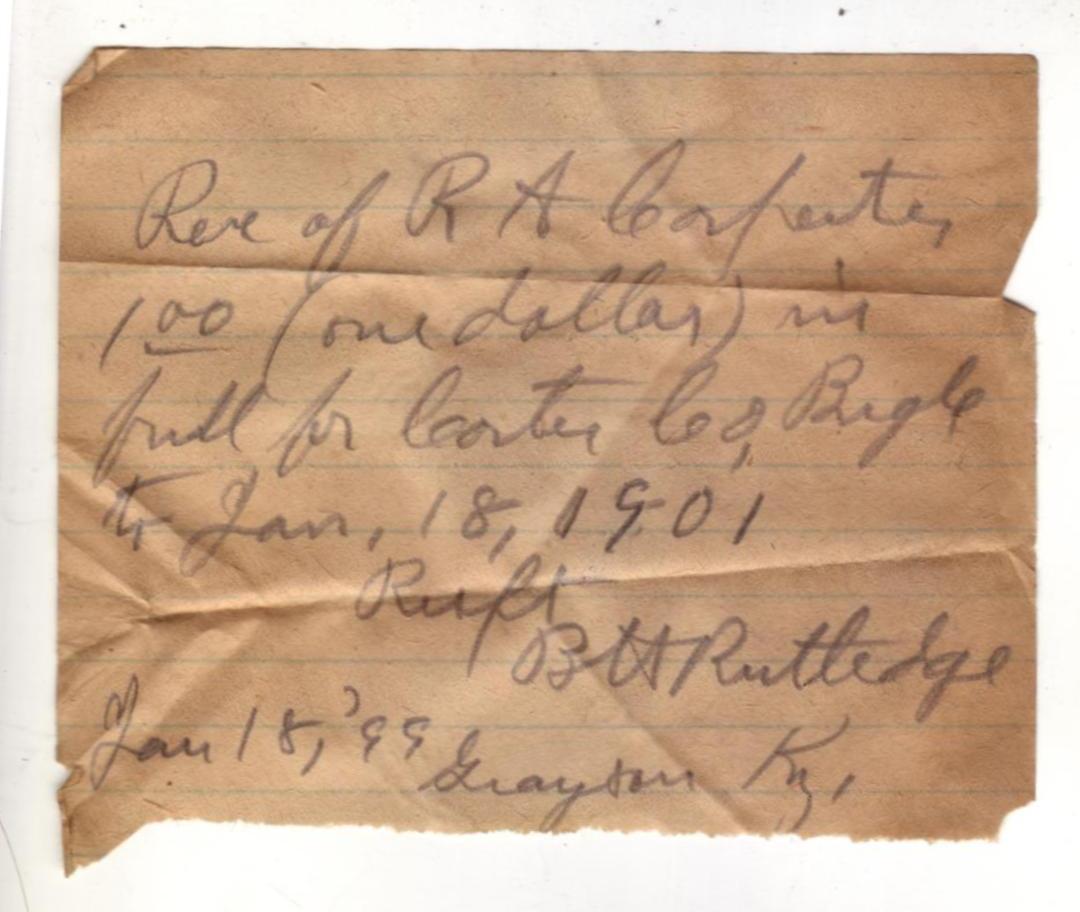 Recv of R A Carpenter
1 00 (one dollar) in
full for Carter Co, Bugle
to Jan, 18, 1901
Respt
B H Rutledge
Jan 18, '99 Grayson Ky,